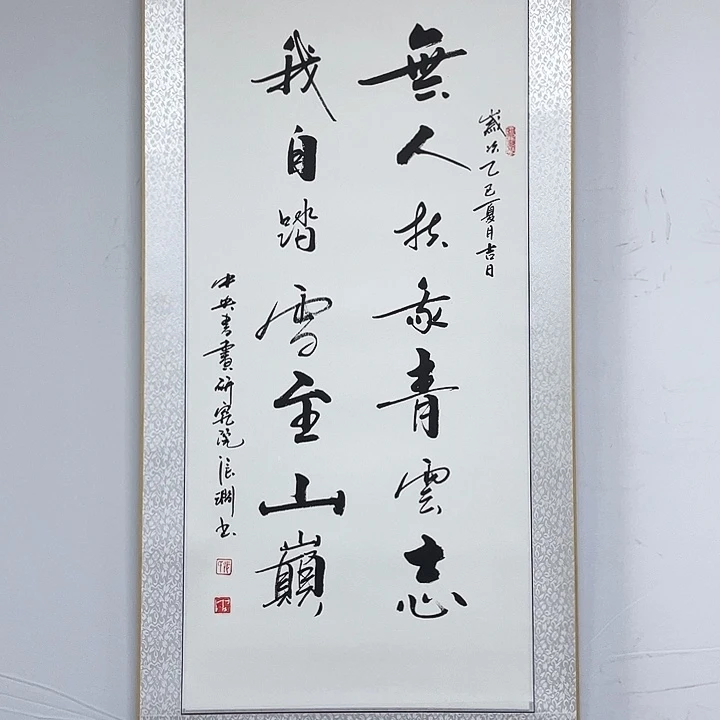 歲次乙巳夏月吉日
無人扶我青雲志
我自踏雪至山巔
中央書畫研究院張書